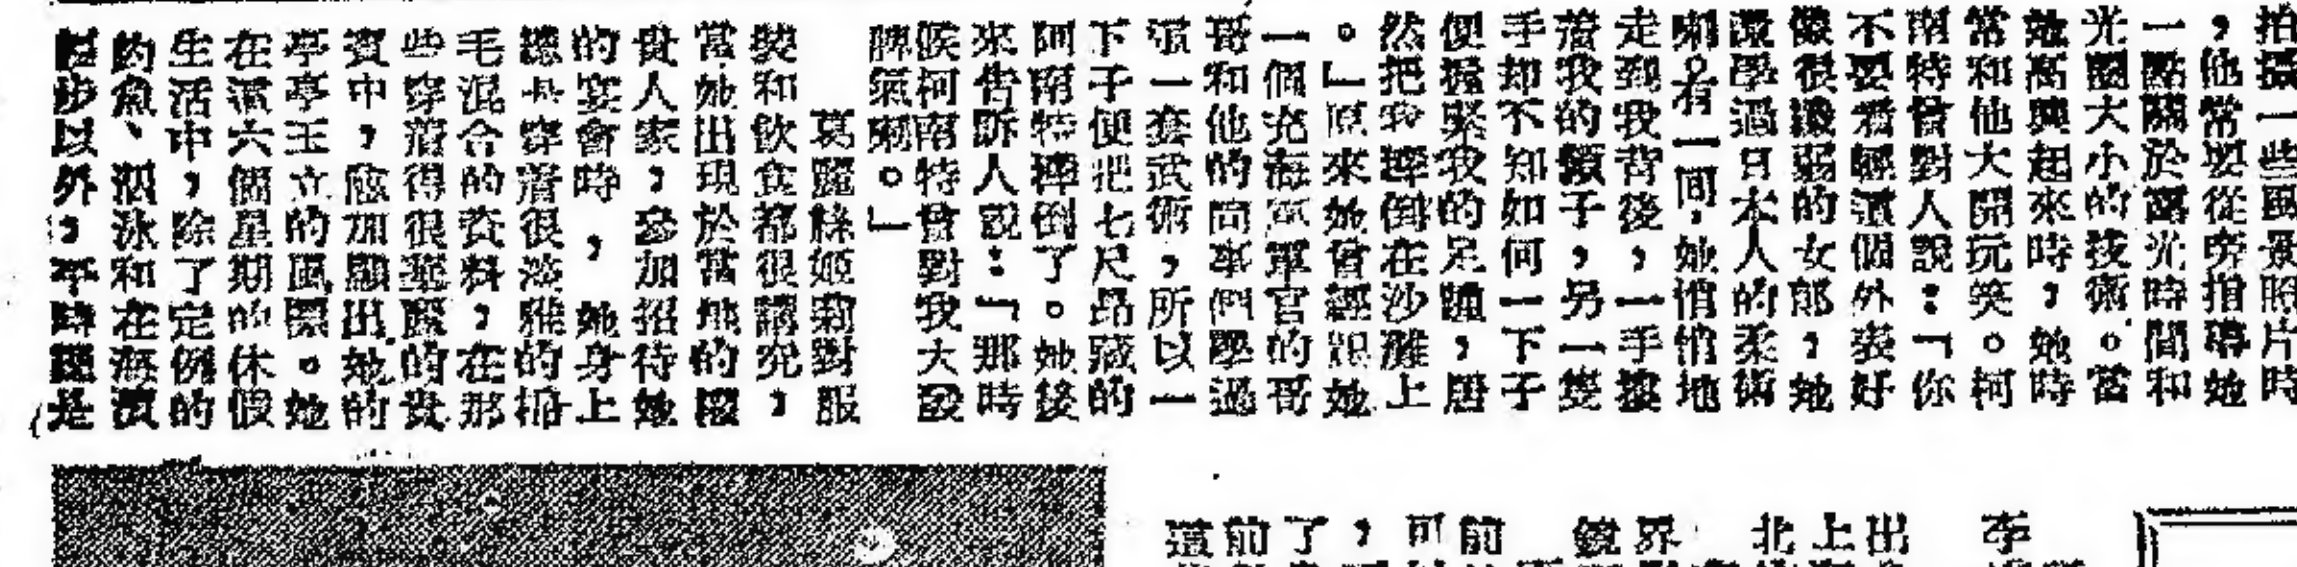 拍攝一些風景照片時
，他常要從旁指導她
一點關於露光時間和
光圈大小的技術。當
她高興起來時，她時
常和他大開玩笑。柯
南特曾對人說：「你
不要看輕這個外表好
像很濃弱的女郎，她
還學過日本人的柔術
喇。有一間，她悄悄地
走到我背後，一手摟
着我的頸子，另一隻
手却不知如何一下子
便握緊我的足踵，居
然把我摔倒在沙灘上
。」原來她曾經跟她
一個充海軍軍官的哥
哥和他的同事們學過
這一套武術，所以一
下子便把七尺昂藏的
柯南特摔倒了。她後
來告訴人說：「那時
候柯南特曾對我大發
脾氣喇。」
葛麗絲姬莉對服
裝和飲食都很講究，
當她出現於當地的
貴人家，參加招待她
的宴會時，她身上
總是穿着很淡雅的
毛混合的資料，在那
些穿着得很華麗的貴
賓中，愈加顯出她的
亭亭玉立的風標。她
在這六個星期的休假
生活中，除了定例的
釣魚、游泳和在海濱
散步以外，平時總是
李
出
上
北
界
鏡
前
可
，
了
前
這